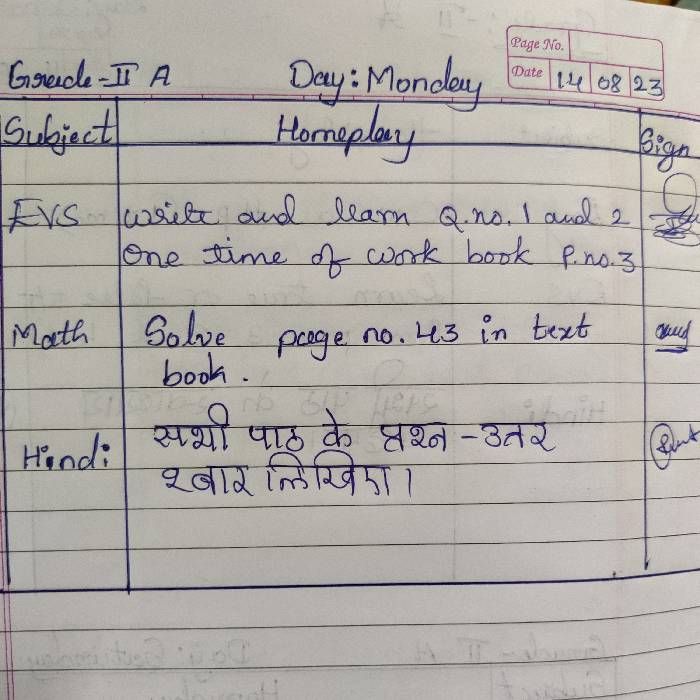 Page No.
Grade-II A Day: Monday Date 14 08 23
Subject Homeplay Sign
EVS write and learn Q.no. 1 and 2
One time of work book P.no.3
Math Solve page no. 43 in text
book.
Hindi सभी पाठ के प्रश्न - उतर
२ बार लिखिए।